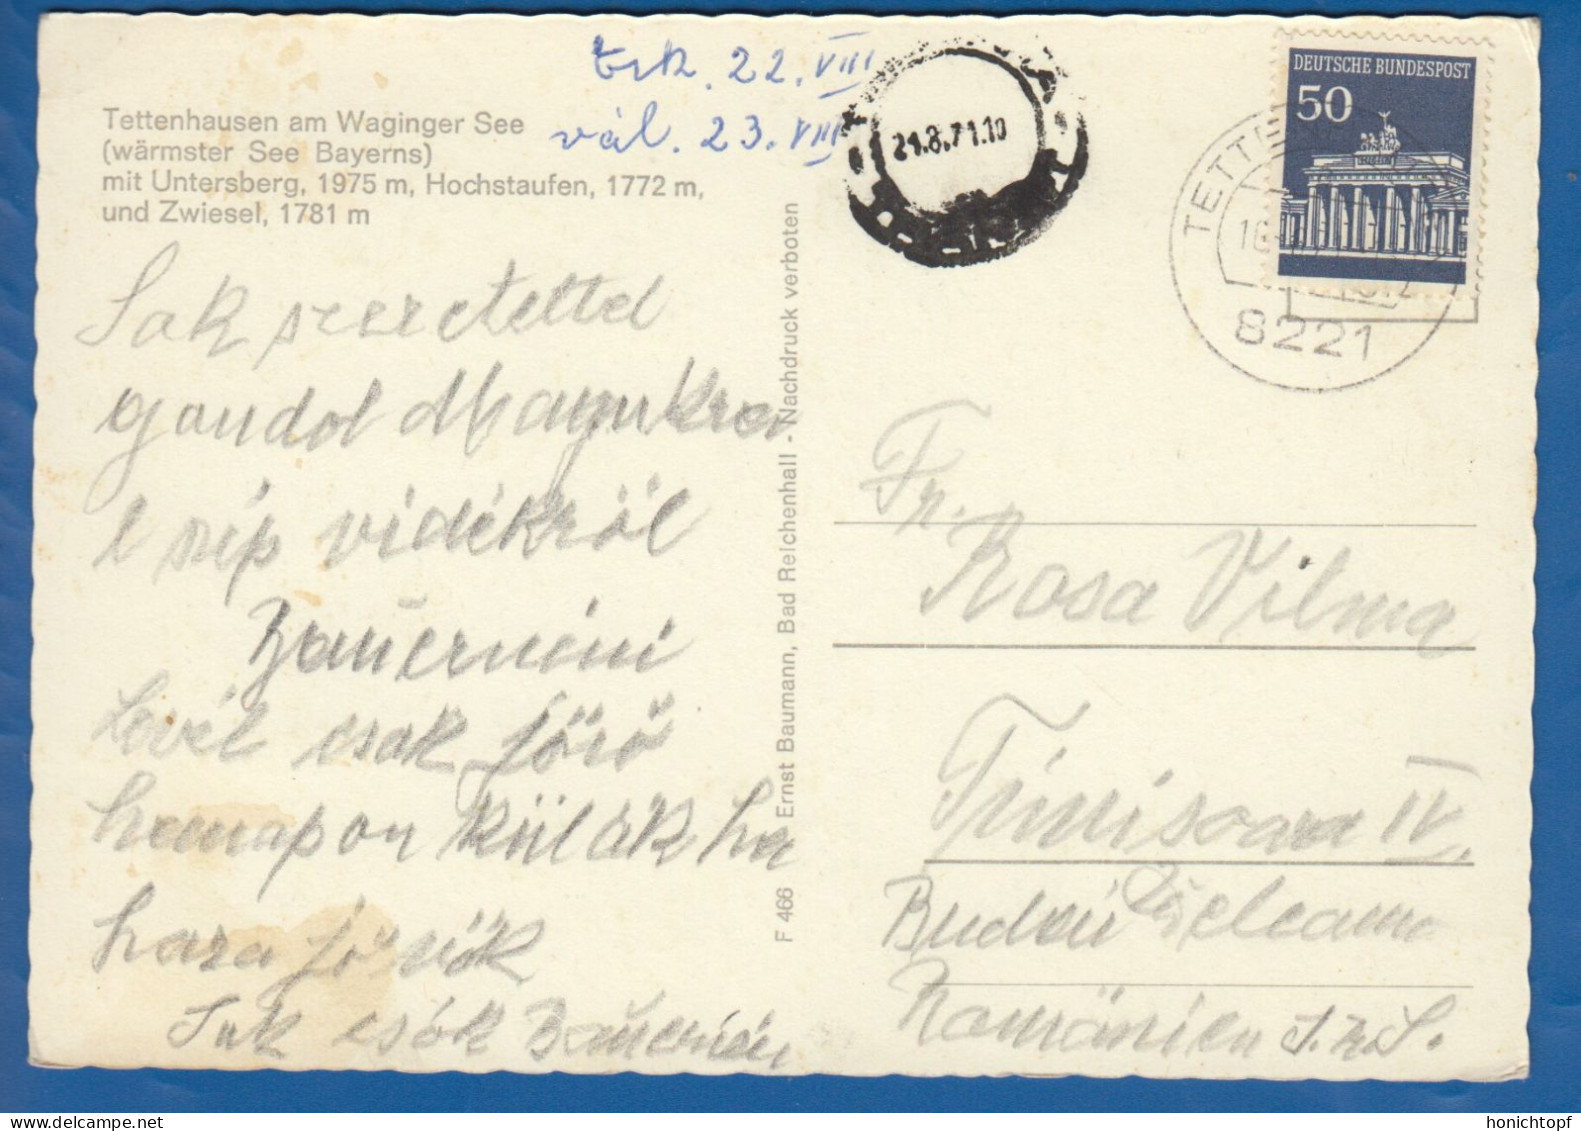 érk. 22. VIII
vál. 23. VIII
Tettenhausen am Waginger See
(wärmster See Bayerns)
mit Untersberg, 1975 m, Hochstaufen, 1772 m,
und Zwiesel, 1781 m
Sok szeretettel
gondol Magukra
e szép vidékről
Bauernéni
Levél csak jövő
honapon küldök ha
haza jövök
Sok csók Bauernéni
F 466 Ernst Baumann, Bad Reichenhall - Nachdruck verboten
21.8.71.10
DEUTSCHE BUNDESPOST
50
8221
Fr.
Rosa Vilma
Timisoara IV.
Rumänien
honichtopf